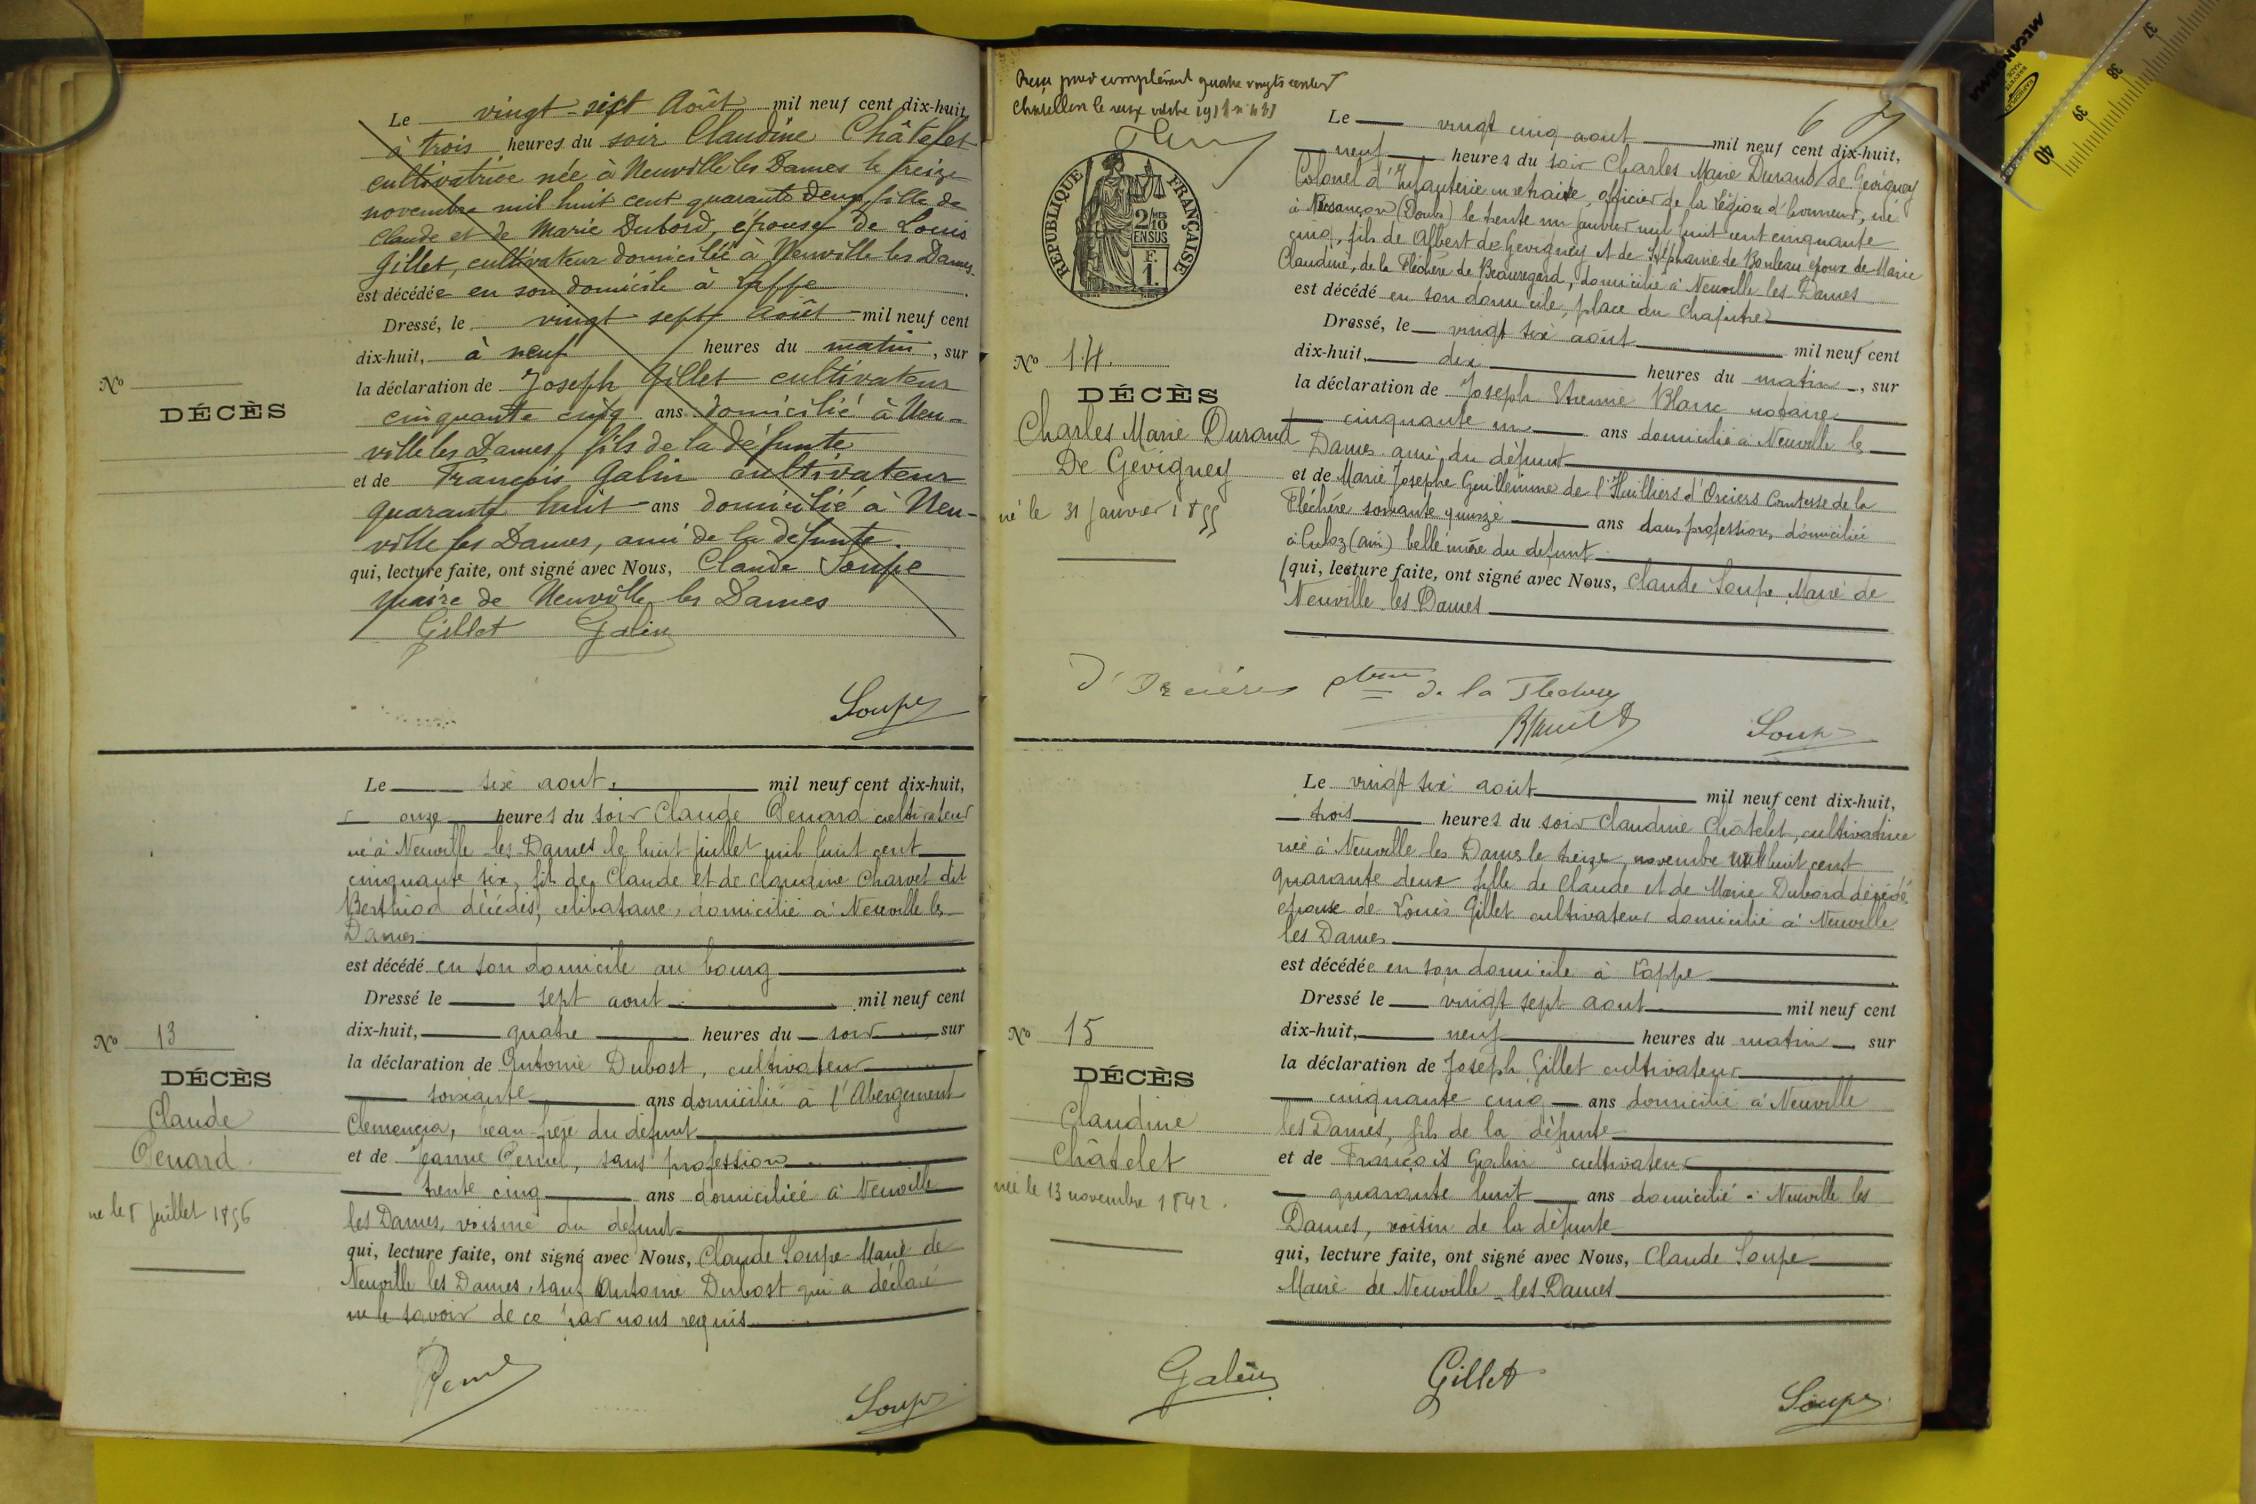 Le vingt-sept Août mil neuf cent dix-huit,
à trois heures du soir Claudine Châtelet
cultivatrice née à Neuville les Dames le treize
novembre mil huit cent quarante deux, fille de
Claude et de Marie Dubord, épouse de Louis
Gillet, cultivateur domiciliée à Neuville les Dames.
est décédée en son domicile à Lappe
Dressé, le vingt sept Août mil neuf cent
dix-huit, à neuf heures du matin, sur
la déclaration de Joseph Gillet cultivateur
cinquante cinq ans domicilié à Neu-
ville les Dames, fils de la défunte
et de François Galin cultivateur
quarante huit ans domicilié à Neu-
ville les Dames, ami de la défunte.
qui, lecture faite, ont signé avec Nous, Claude Soupe
maire de Neuville les Dames
Gillet Galin
Soupe
No
DÉCÈS
Le six aout mil neuf cent dix-huit,
onze heures du soir Claude Penard cultivateur
né à Neuville les Dames le huit juillet mil huit cent
cinquante six, fils de Claude et de Claudine Charvet dit
Berthiod décédés, célibataire, domicilié à Neuville les
Dames
est décédé en son domicile au bourg
Dressé le sept aout mil neuf cent
dix-huit, quatre heures du soir sur
la déclaration de Antoine Dubost, cultivateur
soixante ans domicilié à l'Abergement
Clemencia, beau-frère du défunt
et de Jeanne, sans profession
trente cinq ans domiciliée à Neuville
les Dames, voisine du defunt
qui, lecture faite, ont signé avec Nous, Claude Soupe Maire de
Neuville les Dames, sauf Antoine Dubost qui a déclaré
ne le savoir de ce par nous requis
Soupe
No 13
DÉCÈS
Claude
Penard
né le 8 juillet 1856
quatre vingts
Chatillon le
RÉPUBLIQUE FRANÇAISE
2/10 MES
EN SUS
F.
1.
6
Le vingt cinq aout mil neuf cent dix-huit,
neuf heures du soir Charles Marie Durand de Gevigney
Colonel d'Infanterie en retraite, officier de la Légion d'honneur, né
à Besançon (Doubs) le trente un janvier mil huit cent cinquante
cinq, fils de Albert de Gevigney et de Stéphanie de Bonleau époux de Marie
Claudine, de la Fléchère de Beauregard, domicilié à Neuville les Dames
est décédé en son domicile, place du Chapitre
Dressé, le vingt six août mil neuf cent
dix-huit, dix heures du matin, sur
la déclaration de Joseph Etienne Blanc notaire
cinquante un ans domicilié à Neuville les
Dames ami du défunt
et de Marie Josephe Guillemine de l'Huilliers d'Orciers Comtesse de la
Fléchère soixante quinze ans sans profession, domiciliée
à Culoz (ain) belle mère du defunt
qui, lecture faite, ont signé avec Nous, Claude Soupe Maire de
Neuville les Dames
d'Orcières de la Flechere
Soupe
No 14.
DÉCÈS
Charles Marie Durand
De Gevigney
né le 31 janvier 1855
Le vingt six août mil neuf cent dix-huit,
trois heures du soir Claudine Châtelet, cultivatrice
née à Neuville les Dames le treize novembre mil huit cent
quarante deux fille de Claude et de Marie Dubord décédés
epouse de Louis Gillet cultivateur domicilié à Neuville
les Dames
est décédée en son domicile à Lappe
Dressé le vingt sept aout mil neuf cent
dix-huit, neuf heures du matin sur
la déclaration de Joseph Gillet cultivateur
cinquante cinq ans domicilié à Neuville
les Dames, fils de la défunte
et de François Galin cultivateur
quarante huit ans domicilié à Neuville les
Dames, voisin de la défunte
qui, lecture faite, ont signé avec Nous, Claude Soupe
Maire de Neuville les Dames
Galin Gillet Soupe
No 15
DÉCÈS
Claudine
Châtelet
née le 13 novembre 1842.
MECANORMA
37
38
39
40